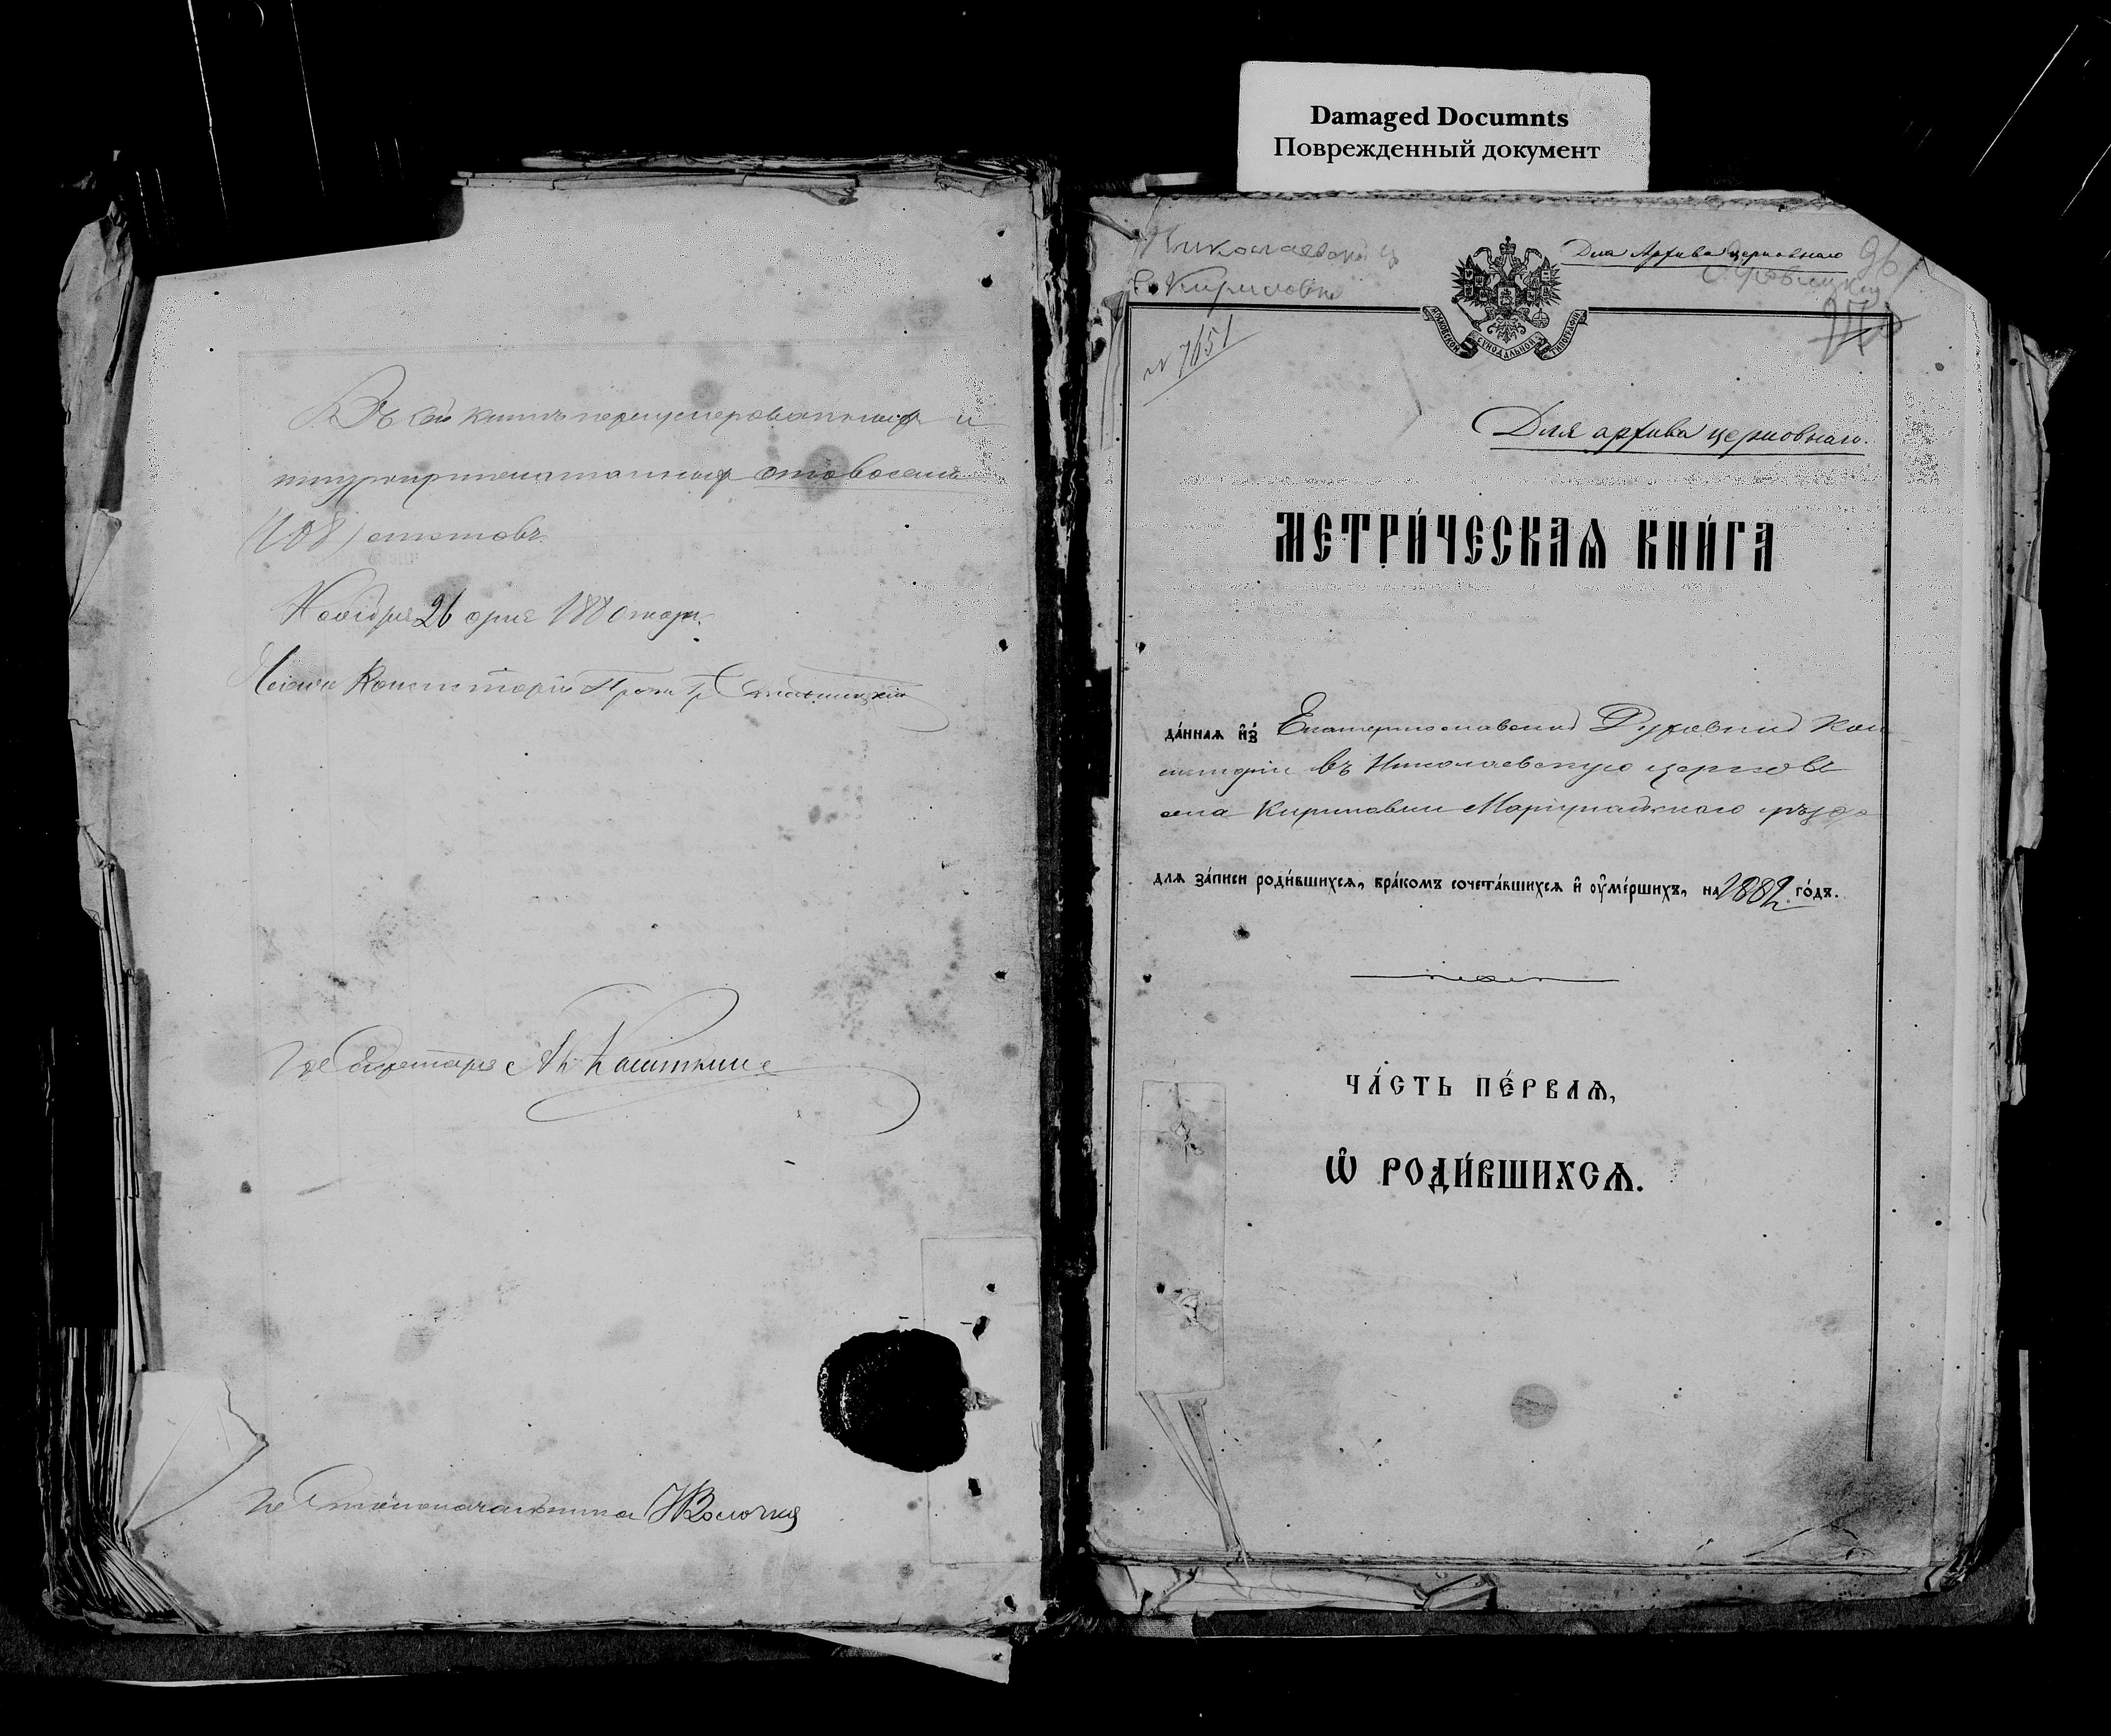 Damaged Documnts
Поврежденный документ
Въ сей книгѣ перенумерованныхъ и
шнуроприпечатанныхъ стовосемь
(108) листовъ.
Ноября 26 дня 1880 года.
Членъ Консисторіи Прот. Гр.
Секретарь
Столоначальника
Николаевской ц
с. Кириловки
Для Архива церковнаго
96
№ 7651
МОСКОВСКОЙ СѴНОДАЛЬНОЙ ТИПОГРАФІИ
Для архива церковнаго.
МЕТРИ́ЧЕСКАѦ КНИ́ГА
да́ннаѧ и҆з̾ Екатеринославской Духовной Кон
систоріи въ Николаевскую церковь
села Кириловки Маріупольскаго уѣзда
для за́писи роди́вшихсѧ, бра́комъ сочета́вшихсѧ и҆ оу҆ме́ршихъ, на 1882 го́дъ.
ЧА́СТЬ ПЕ́РВАѦ,
Ѡ҆ РОДИ́ВШИХСѦ.